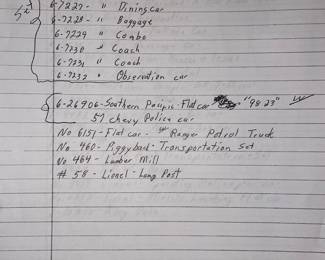 Set
6-7227- " Dining car
6-7228- " Baggage
6-7229 " Combo
6-7230 " Coach
6-7231 " Coach
6-7232 " Observation car
6-26906-Southern Pacific-Flat car "9823"
57 chevy Police car
No 6151-Flat car- Ranger Patrol Truck
No 460- Piggyback-Transportation Set
No 464- Lumber Mill
# 58- Lionel- Lamp Post